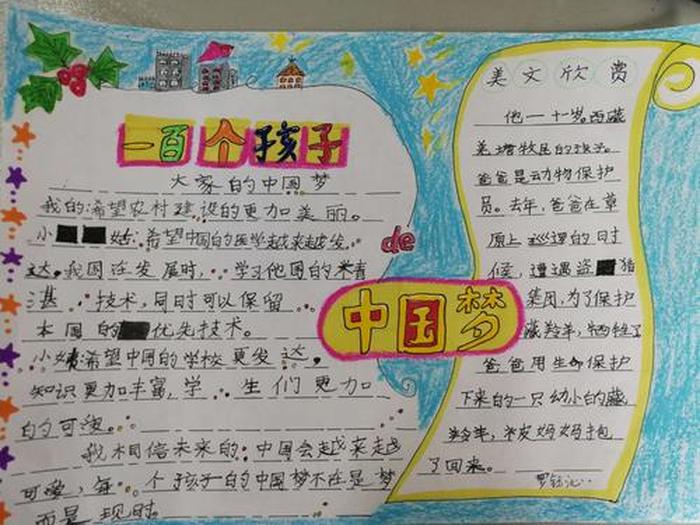 一百个孩子
de
中国梦
大家的中国梦
我的希望农村建设的更加美丽。
小姑希望中国的医学越来越发
达。我国在发展时,学习他国的米青
湛技术,同时可以保留
本国的优先技术。
小姨希望中国的学校更发达,
知识更加丰富,学生们更加
的可爱。
我相信未来的中国会越来越
可爱,每个孩子的中国梦不在是梦
而是现时
美文欣赏
他一十岁。西藏
羌塘牧民的孩子。
爸爸是动物保护
员。去年,爸爸在草
原上巡逻的日时
候,遭遇盗猎
集团,为了保护
藏羚羊,牺牲了
爸爸用生命保护
下来的一只幼小的藏
羚羊,被妈妈抱
了回来。